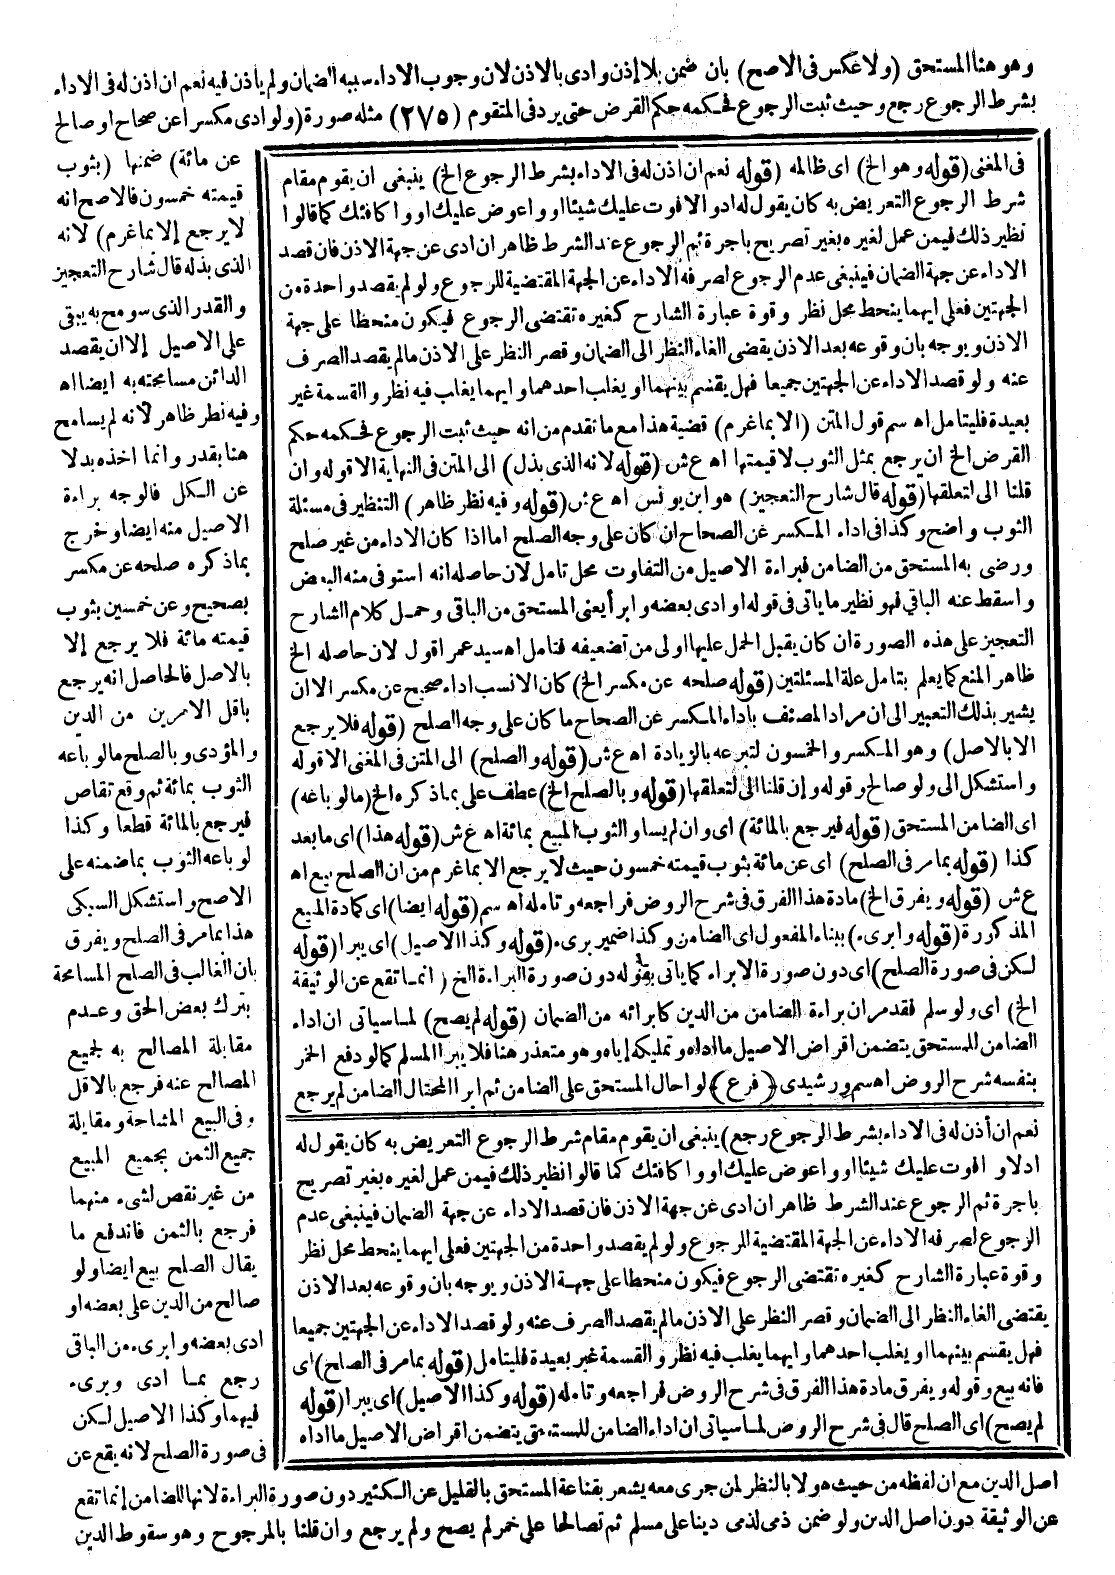 وهو هنا المستحق (ولا عكس فى الاصح) بان ضمن بلا إذن وادى بالاذن لان وجوب الاداء سببه الضمان ولم يأذن فيه نعم ان اذن له فى الاداء
بشرط الرجوع رجع وحيث ثبت الرجوع فحكمه حكم القرض حتى يرد فى المتقوم (٢٧٥) مثله صورة (ولو ادى مكسرا عن صحاح او صالح
عن مائة) ضمنها (بثوب
قيمته خمسون فالاصح انه
لا يرجع إلا بما غرم) لانه
الذى بذله قال شارح التعجيز
والقدر الذى سومح به يبقى
على الاصيل إلا ان يقصد
الدائن مسامحته به ايضا اه
وفيه نظر ظاهر لانه لم يسامح
هنا بقدر وانما اخذه بدلا
عن الكل فالوجه براءة
الاصيل منه ايضا وخرج
بما ذكره صلحه عن مكسر
بصحيح وعن خمسين بثوب
قيمته مائة فلا يرجع إلا
بالاصل فالحاصل انه يرجع
باقل الامرين من الدين
والمؤدى وبالصلح مالو باعه
الثوب بمائة ثم وقع تقاص
فيرجع بالمائة قطعا وكذا
لو باعه الثوب بما ضمنه على
الاصح واستشكل السبكى
هذا بما مر فى الصلح ويفرق
بان الغالب فى الصلح المسامحة
بترك بعض الحق وعدم
مقابلة المصالح به لجميع
المصالح عنه فرجع بالاقل
وفى البيع المشاحة ومقابلة
جميع الثمن بجميع المبيع
من غير نقص لشىء منهما
فرجع بالثمن فاندفع ما
يقال الصلح بيع ايضا ولو
صالح من الدين على بعضه او
ادى بعضه وابرىء من الباقى
رجع بما ادى وبرىء
فيهما وكذا الاصيل لكن
فى صورة الصلح لانه يقع عن
فى المغنى (قوله وهو الخ) اى ظالمه (قوله نعم ان اذن له فى الاداء بشرط الرجوع الخ) ينبغى ان يقوم مقام
شرط الرجوع التعريض به كان يقول له اد ولا افوت عليك شيئا او واعوض عليك او واكافئك كما قالوا
نظير ذلك فيمن عمل لغيره بغير تصريح باجرة ثم الرجوع عند الشرط ظاهر ان ادى عن جهة الاذن فان قصد
الاداء عن جهة الضمان فينبغى عدم الرجوع لصرفه الاداء عن الجهة المقتضية للرجوع ولو لم يقصد واحدة من
الجهتين فعلى ايهما ينحط محل نظر وقوة عبارة الشارح كغيره تقتضى الرجوع فيكون منحظا على جهة
الاذن ويوجه بان وقوعه بعد الاذن يقضى الغاء النظر الى الضمان وقصر النظر على الاذن مالم يقصد الصرف
عنه ولو قصد الاداء عن الجهتين جميعا فهل يقسم بينهما او يغلب احدهما وايهما يغلب فيه نظر والقسمة غير
بعيدة فليتامل اه سم قول المتن (الا بما غرم) قضية هذا مع ما تقدم من انه حيث ثبت الرجوع فحكمه حكم
القرض الخ ان يرجع بمثل الثوب لا قيمتها اه ع ش (قوله لانه الذى بذل) الى المتن فى النهاية الا قوله وان
قلنا الى لتعلقها (قوله قال شارح التعجيز) هو ابن يونس اه ع ش (قوله وفيه نظر ظاهر) التنظير فى مسئلة
الثوب واضح وكذا فى اداء المكسر عن الصحاح ان كان على وجه الصلح اما اذا كان الاداء من غير صلح
ورضى به المستحق من الضامن فبراءة الاصيل من التفاوت محل تامل لان حاصله انه استوفى منه البعض
واسقط عنه الباقي فهو نظير ما ياتى فى قوله او ادى بعضه وابرأ يعنى المستحق من الباقى وحمل كلام الشارح
التعجيز على هذه الصورة ان كان يقبل الحمل عليها اولى من تضعيفه فتامل اه سيد عمر اقول لان حاصله الخ
ظاهر المنع كما يعلم بتامل علة المسئلتين (قوله صلحه عن مكسر الخ) كان الانسب اداء صحيح عن مكسر الا ان
يشير بذلك التعبير الى ان مراد المصنف باداء المكسر عن الصحاح ما كان على وجه الصلح (قوله فلا يرجع
الا بالاصل) وهو المكسر والخمسون لتبرعه بالزيادة اه ع ش (قوله والصلح) الى المتن فى المغنى الا قوله
واستشكل الى ولو صالح وقوله وإن قلنا الى لتعلقها (قوله وبالصلح الخ) عطف على بما ذكره الخ (مالو باعه)
اى الضامن المستحق (قوله فيرجع بالمائة) اى وان لم يساو الثوب المبيع بمائة اه ع ش (قوله هذا) اى ما بعد
كذا (قوله بما مر فى الصلح) اى عن مائة بثوب قيمته خمسون حيث لا يرجع الا بما غرم من ان الصلح بيع اه
ع ش (قوله ويفرق الخ) مادة هذا الفرق فى شرح الروض فراجعه وتامله اه سم (قوله ايضا) اى كمادة المبيع
المذكورة (قوله وابرىء) ببناء المفعول اى الضامن وكذا ضمير برىء (قوله وكذا الاصيل) اى يبرا (قوله
لكن فى صورة الصلح) اى دون صورة الابراء كما ياتى بقوله دون صورة البراءة الخ (انما تقع عن الوثيقة
الخ) اى ولو سلم فقد مر ان براءة الضامن من الدين كابرائه من الضمان (قوله لم يصح) لما سياتى ان اداء
الضامن للمستحق يتضمن اقراض الاصيل ما اداه وتمليكه إياه وهو متعذر هنا فلا يبرا المسلم كما لو دفع الخمر
بنفسه شرح الروض اه سم ورشيدى (فرع) لو احال المستحق على الضامن ثم ابرا المحتال الضامن لم يرجع
نعم ان أذن له فى الاداء بشرط الرجوع رجع) ينبغى ان يقوم مقام شرط الرجوع التعريض به كان يقول له
اد ولا افوت عليك شيئا او واعوض عليك او واكافئك كما قالوا نظير ذلك فيمن عمل لغيره بغير تصريح
باجرة ثم الرجوع عند الشرط ظاهر ان ادى عن جهة الاذن فان قصد الاداء عن جهة الضمان فينبغى عدم
الرجوع لصرفه الاداء عن الجهة المقتضية للرجوع ولو لم يقصد واحدة من الجهتين فعلى ايهما ينحط محل نظر
وقوة عبارة الشارح كغيره تقتضى الرجوع فيكون منحطا على جهة الاذن ويوجه بان وقوعه بعد الاذن
يقتضى الغاء النظر الى الضمان وقصر النظر على الاذن مالم يقصد الصرف عنه ولو قصد الاداء عن الجهتين جميعا
فهل يقسم بينهما او يغلب احدهما وايهما يغلب فيه نظر والقسمة غير بعيدة فليتامل (قوله بما مر فى الصلح) اى
فانه بيع وقوله ويفرق مادة هذا الفرق فى شرح الروض فراجعه وتامله (قوله وكذا الاصيل) اى يبرا (قوله
لم يصح) اى الصلح قال فى شرح الروض لما سياتى ان اداء الضامن للمستحق يتضمن اقراض الاصيل ما اداه
اصل الدين مع ان لفظه من حيث هو لا بالنظر لمن جرى معه يشعر بقناعة المستحق بالقليل عن الكثير دون صورة البراءة لانها للضامن إنما تقع
عن الوثيقة دون اصل الدين ولو ضمن ذمى لذمى دينا على مسلم ثم تصالحا على خمر لم يصح ولم يرجع وان قلنا بالمرجوح وهو سقوط الدين